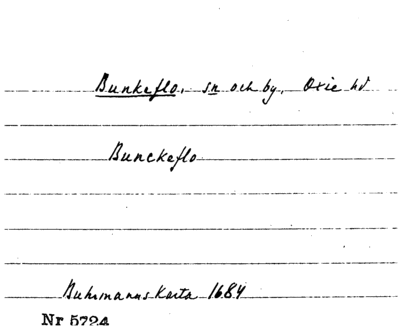 Bunkeflo, sn och by, Oxie hd
Bunckeflo
Buhrmanns Karta 1684
Nr 5724